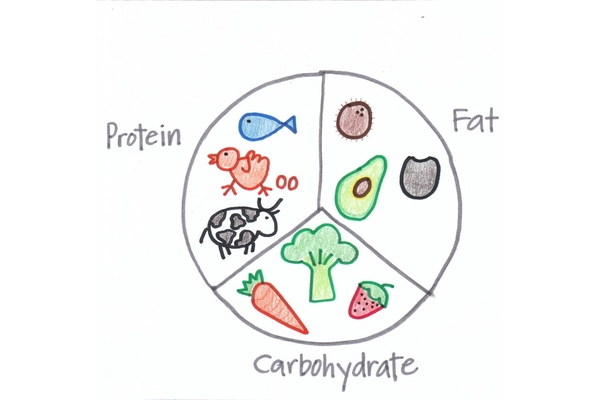 Protein
Fat
Carbohydrate